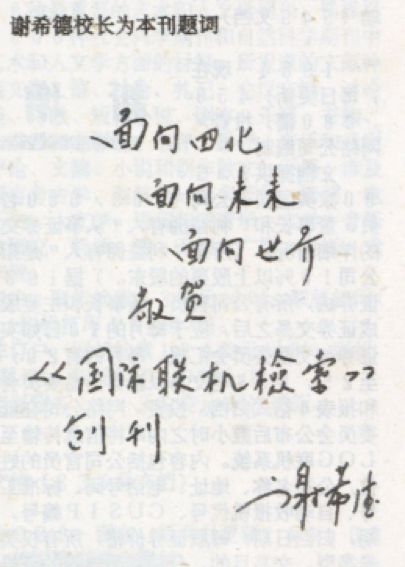 谢希德校长为本刊题词
面向四化
面向未来
面向世界
敬贺
《国际联机检索》
创刊
谢希德